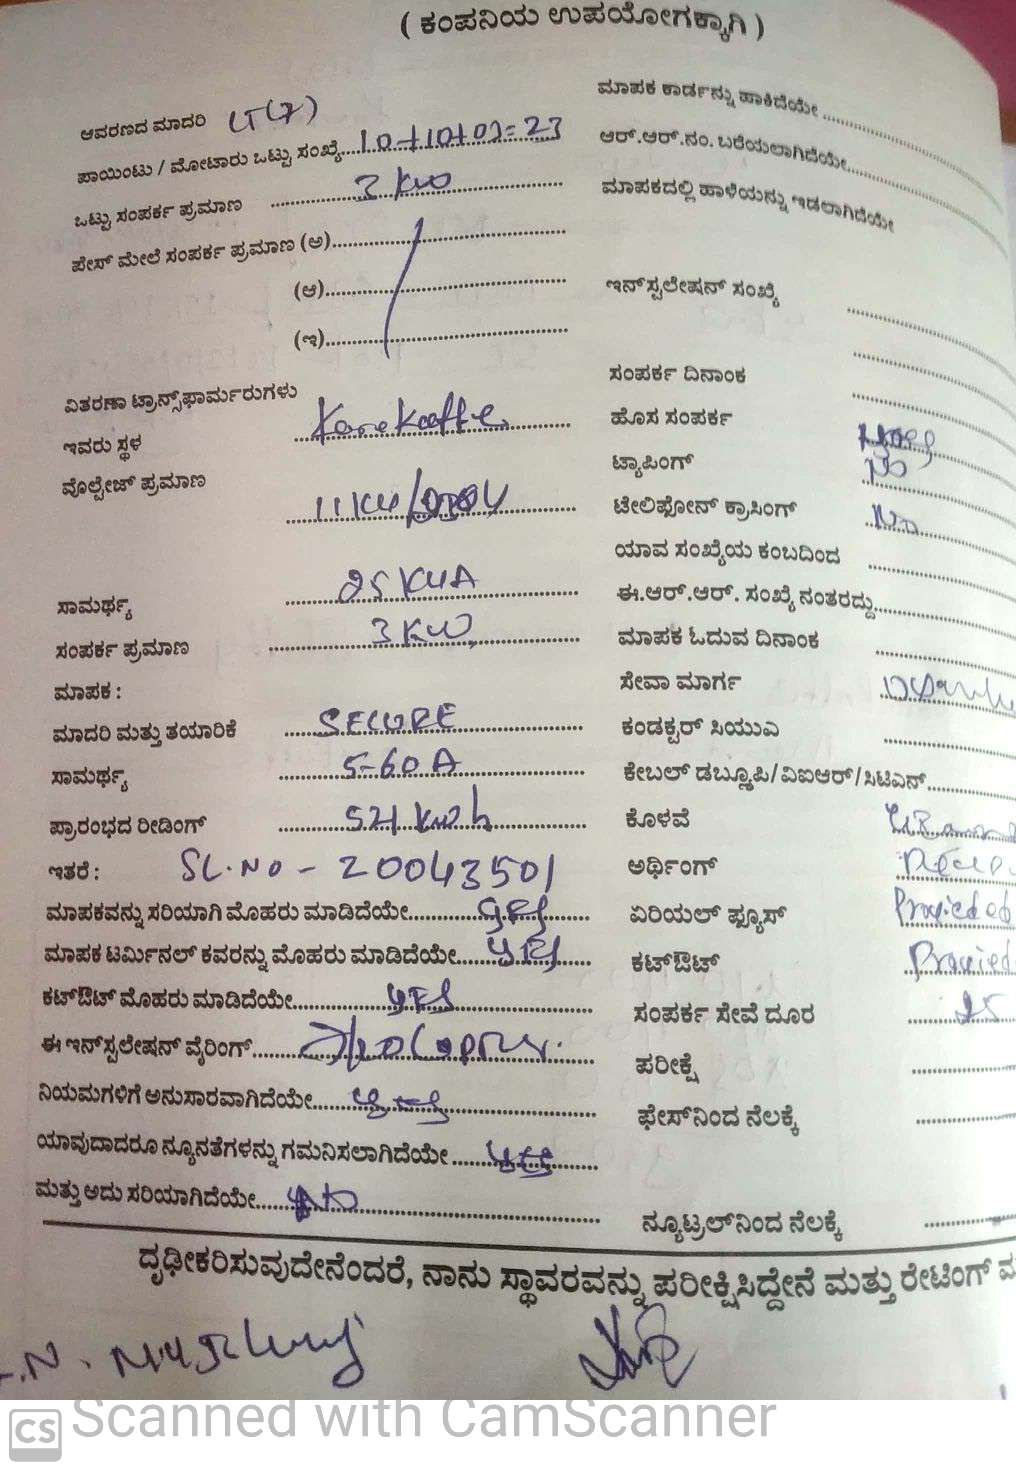 ( ಕಂಪನಿಯ ಉಪಯೋಗಕ್ಕಾಗಿ )
ಆವರಣದ ಮಾದರಿ LT(7)
ಪಾಯಿಂಟು / ಮೋಟಾರು ಒಟ್ಟು ಸಂಖ್ಯೆ....10+10+03=23
ಒಟ್ಟು ಸಂಪರ್ಕ ಪ್ರಮಾಣ 3 KW
ಪೇಸ್ ಮೇಲೆ ಸಂಪರ್ಕ ಪ್ರಮಾಣ (ಅ)
(ಆ)
(ಇ)
ವಿತರಣಾ ಟ್ರಾನ್ಸ್‌ಫಾರ್ಮರುಗಳು
ಇವರು ಸ್ಥಳ
ವೊಲ್ಟೇಜ್ ಪ್ರಮಾಣ
11KV/
ಸಾಮರ್ಥ್ಯ 25 KVA
ಸಂಪರ್ಕ ಪ್ರಮಾಣ 3 KW
ಮಾಪಕ :
ಮಾದರಿ ಮತ್ತು ತಯಾರಿಕೆ SECURE
ಸಾಮರ್ಥ್ಯ 5-60 A
ಪ್ರಾರಂಭದ ರೀಡಿಂಗ್ 521 kwh
ಇತರೆ : SL.NO - 20043501
ಮಾಪಕವನ್ನು ಸರಿಯಾಗಿ ಮೊಹರು ಮಾಡಿದೆಯೇ YES
ಮಾಪಕ ಟರ್ಮಿನಲ್ ಕವರನ್ನು ಮೊಹರು ಮಾಡಿದೆಯೇ YES
ಕಟ್‌ಔಟ್ ಮೊಹರು ಮಾಡಿದೆಯೇ YES
ಈ ಇನ್‌ಸ್ಟಲೇಷನ್ ವೈರಿಂಗ್
ನಿಯಮಗಳಿಗೆ ಅನುಸಾರವಾಗಿದೆಯೇ
ಯಾವುದಾದರೂ ನ್ಯೂನತೆಗಳನ್ನು ಗಮನಿಸಲಾಗಿದೆಯೇ
ಮತ್ತು ಅದು ಸರಿಯಾಗಿದೆಯೇ NO
ಮಾಪಕ ಕಾರ್ಡನ್ನು ಹಾಕಿದೆಯೇ
ಆರ್.ಆರ್.ನಂ. ಬರೆಯಲಾಗಿದೆಯೇ
ಮಾಪಕದಲ್ಲಿ ಹಾಳೆಯನ್ನು ಇಡಲಾಗಿದೆಯೇ
ಇನ್‌ಸ್ಟಲೇಷನ್ ಸಂಖ್ಯೆ
ಸಂಪರ್ಕ ದಿನಾಂಕ
ಹೊಸ ಸಂಪರ್ಕ
ಟ್ಯಾಪಿಂಗ್ No
ಟೇಲಿಫೋನ್ ಕ್ರಾಸಿಂಗ್ No
ಯಾವ ಸಂಖ್ಯೆಯ ಕಂಬದಿಂದ
ಈ.ಆರ್.ಆರ್. ಸಂಖ್ಯೆ ನಂತರದ್ದು
ಮಾಪಕ ಓದುವ ದಿನಾಂಕ
ಸೇವಾ ಮಾರ್ಗ
ಕಂಡಕ್ಟರ್ ಸಿಯುಎ
ಕೇಬಲ್ ಡಬ್ಲ್ಯೂಪಿ/ವಿಐಆರ್/ಸಿಟಿಎನ್
ಕೊಳವೆ
ಅರ್ಥಿಂಗ್
ಏರಿಯಲ್ ಫ್ಯೂಸ್ Provided
ಕಟ್‌ಔಟ್ Provied
ಸಂಪರ್ಕ ಸೇವೆ ದೂರ
ಪರೀಕ್ಷೆ
ಫೇಸ್‌ನಿಂದ ನೆಲಕ್ಕೆ
ನ್ಯೂಟ್ರಲ್‌ನಿಂದ ನೆಲಕ್ಕೆ
ದೃಢೀಕರಿಸುವುದೇನೆಂದರೆ, ನಾನು ಸ್ಥಾವರವನ್ನು ಪರೀಕ್ಷಿಸಿದ್ದೇನೆ ಮತ್ತು ರೇಟಿಂಗ್
CS Scanned with CamScanner